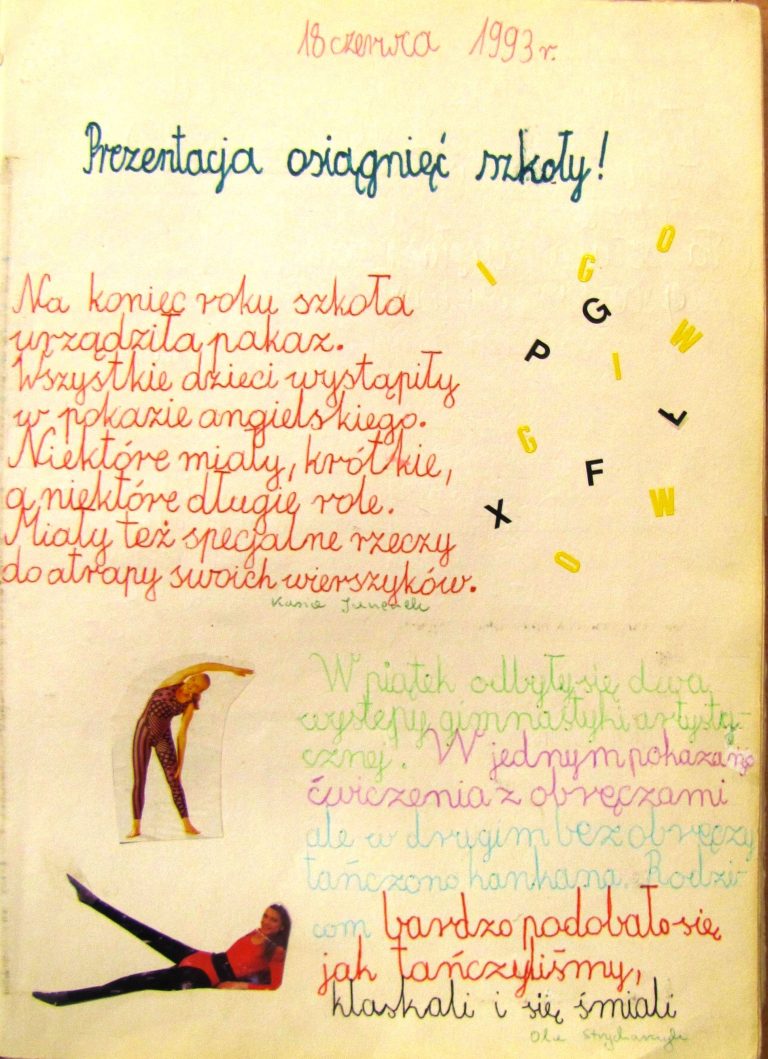 18 czerwca 1993 r.
Prezentacja osiągnięć szkoły!
Na koniec roku szkoła
urządziła pakaz.
Wszystkie dzieci wystąpiły
w pokazie angielskiego.
Niektóre miały, krótkie,
a niektóre długie role.
Miały też specjalne rzeczy
do atrapy swoich wierszyków.
Kasia
I G O
G
P I W
Ł
G F
X W
O
W piątek odbyły się dwa
występy gimnastyki artysty-
cznej. W jednym pokazano
ćwiczenia z obręczami
ale w drugim bez obręczy
tańczono kankana. Rodzi-
com bardzo podobało się
jak tańczyliśmy,
klaskali i się śmiali
Ola